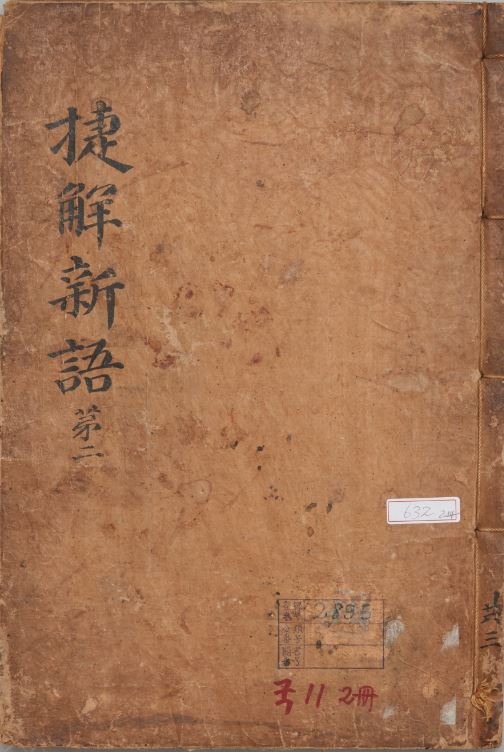 捷解新語
第二
632 2冊
共三
2895
국 11 2冊